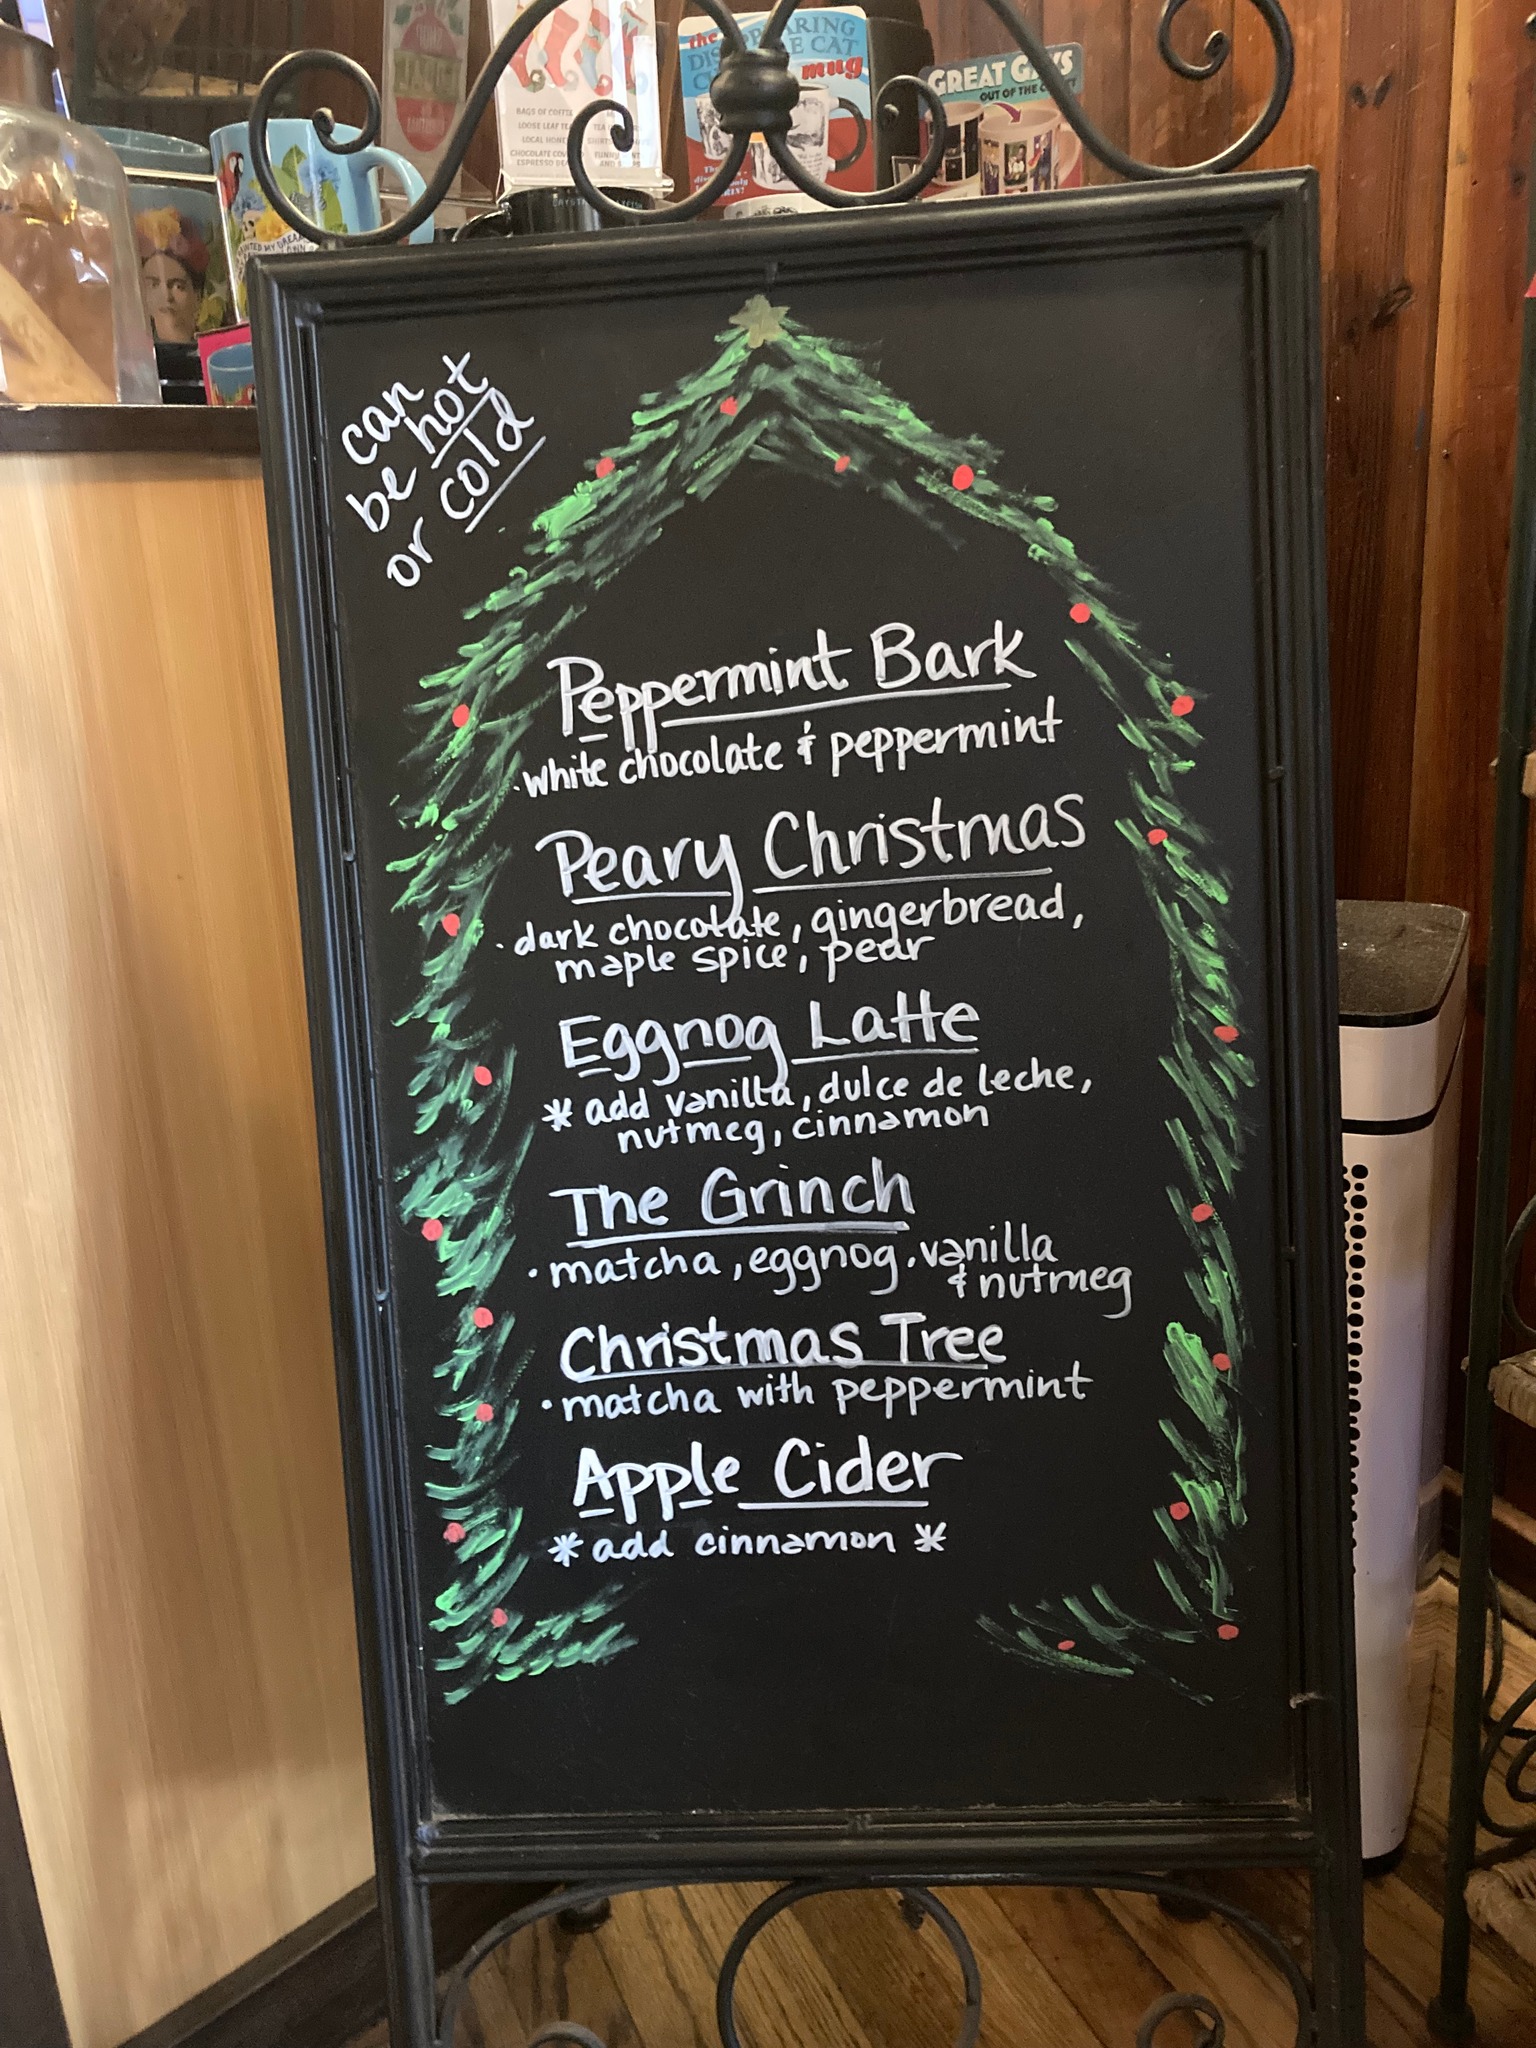 the DISAPPEARING
CHESHIRE CAT
mug
GREAT GAYS
OUT OF THE CLOSET
BAGS OF COFFEE
LOOSE LEAF TEA
LOCAL HONEY
CHOCOLATE COVERED
ESPRESSO BEANS
can
be hot
or cold
Peppermint Bark
· white chocolate & peppermint
Peary Christmas
· dark chocolate, gingerbread,
maple spice, pear
Eggnog Latte
* add vanilla, dulce de leche,
nutmeg, cinnamon
The Grinch
· matcha, eggnog, vanilla
& nutmeg
Christmas Tree
· matcha with peppermint
Apple Cider
* add cinnamon *